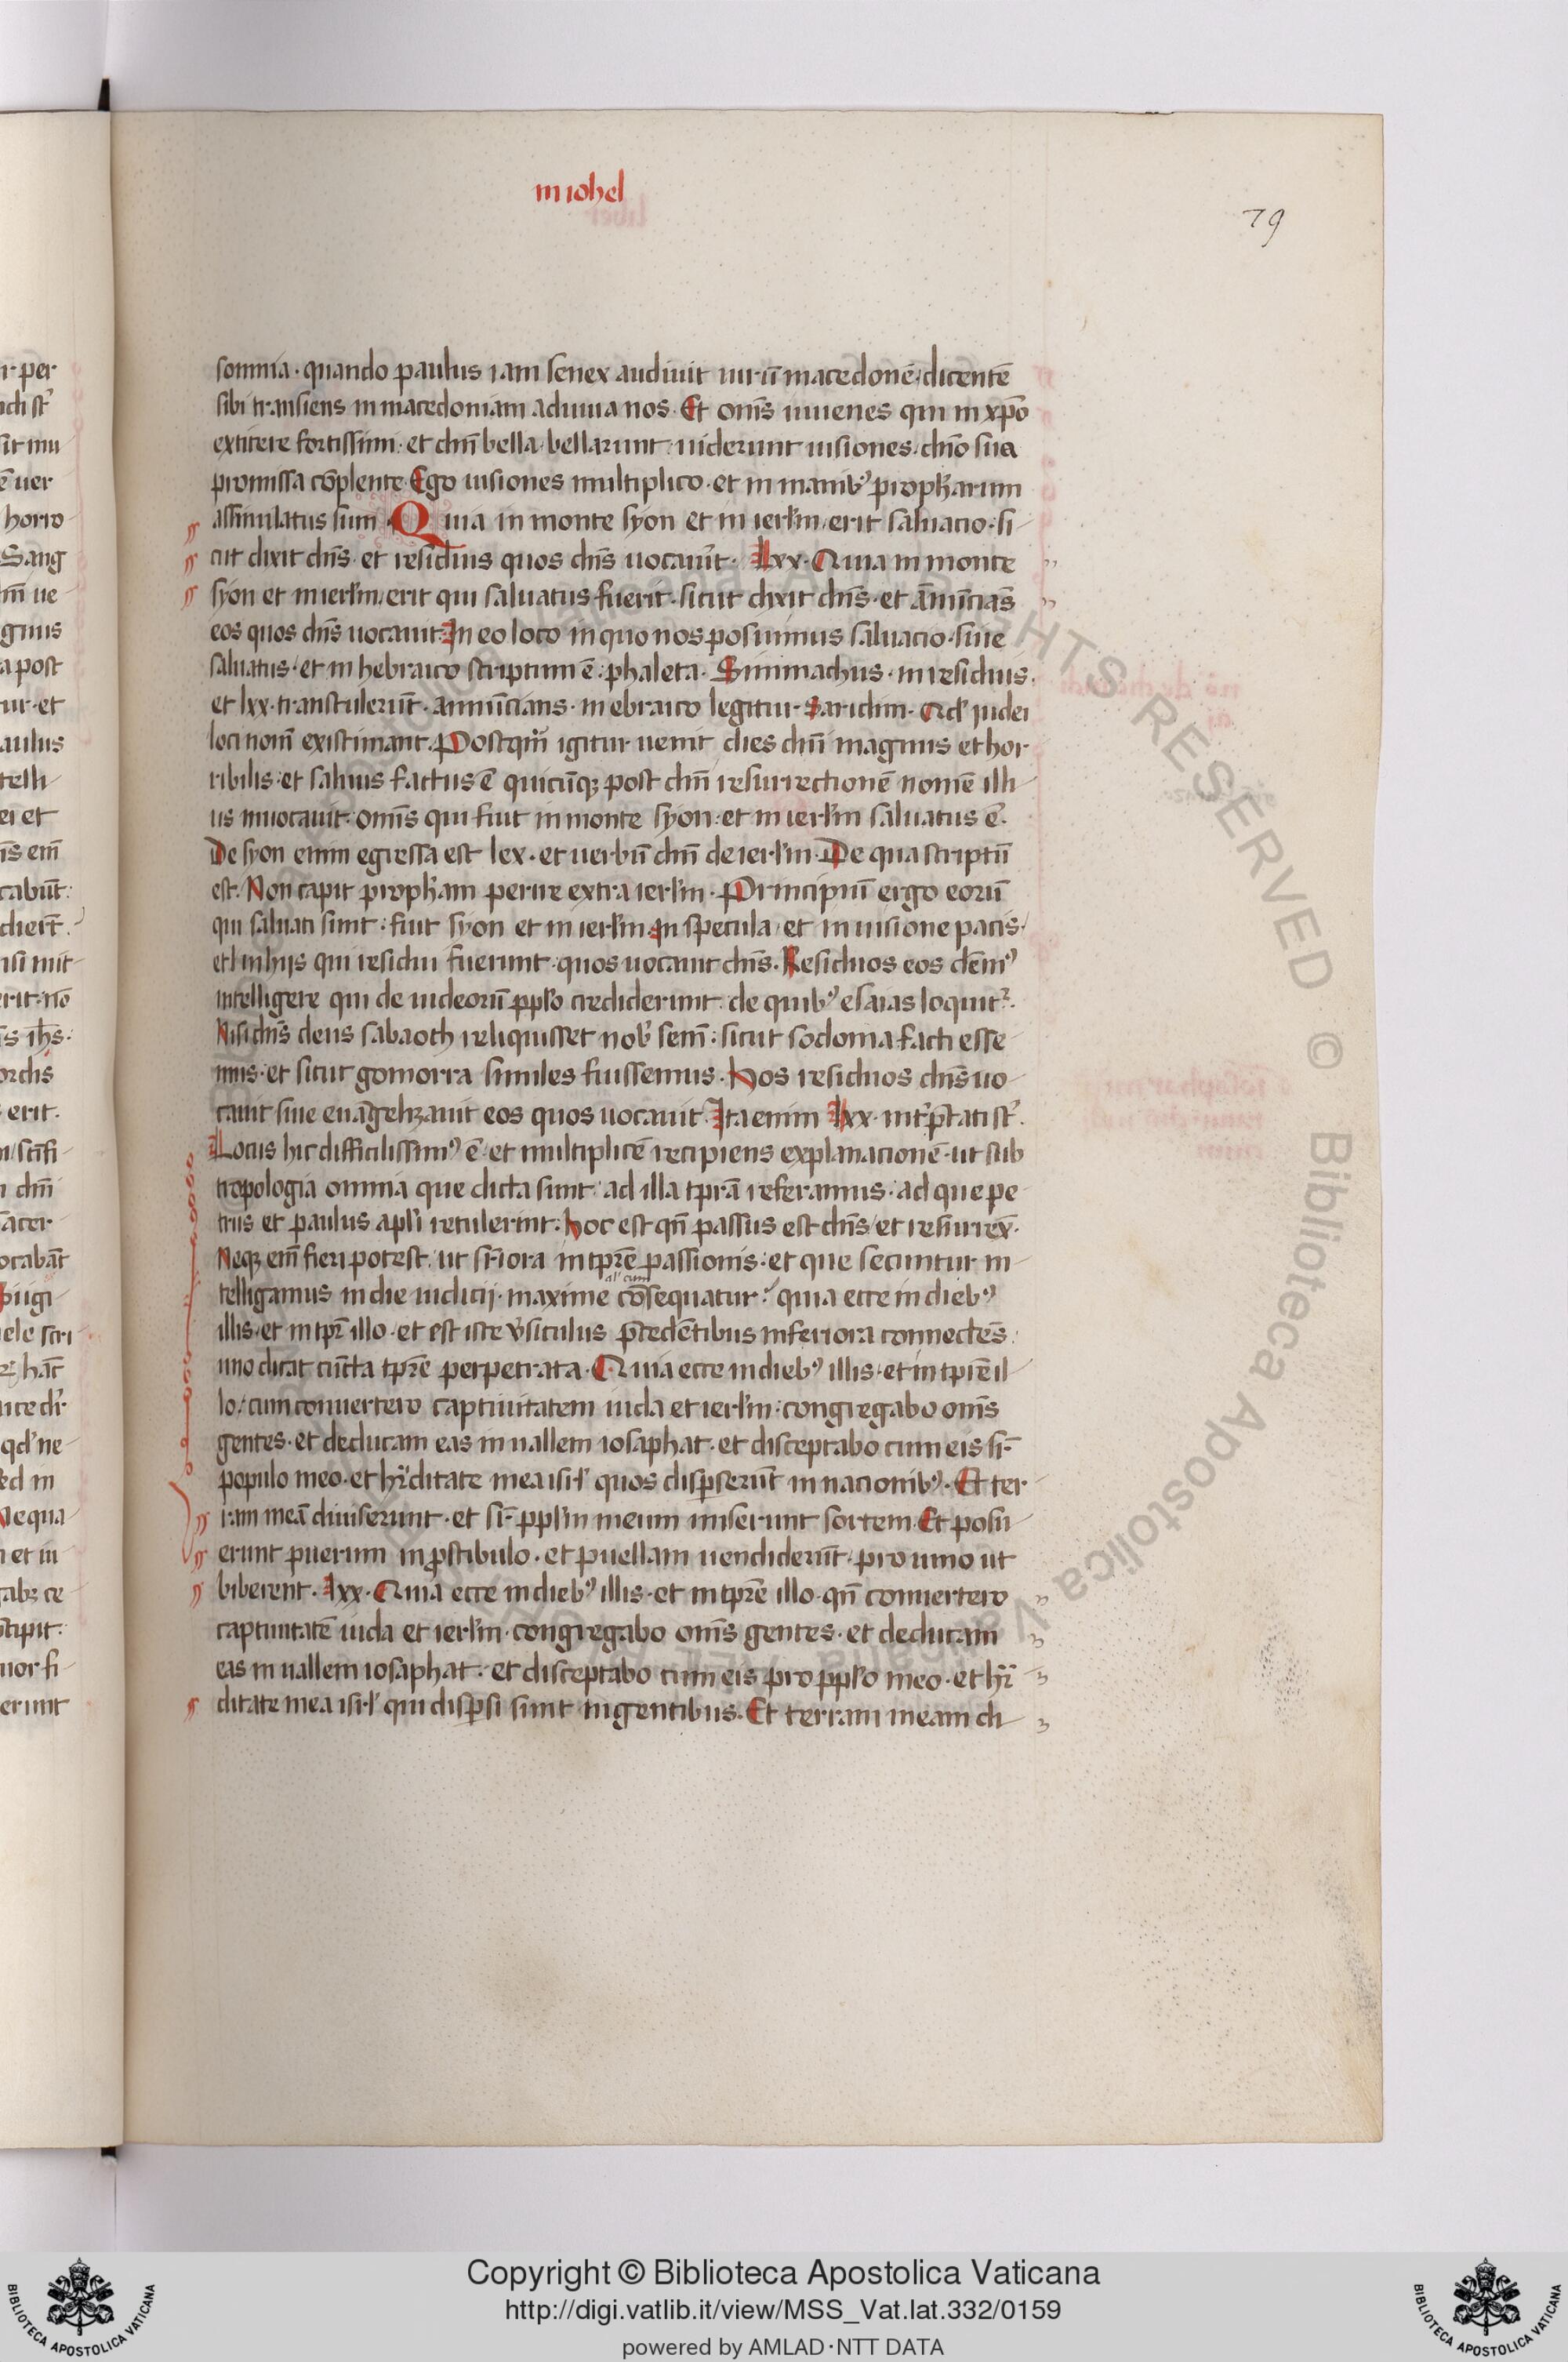 in iohel
79
somnia · quando paulus iam senex audiuit uirū macedonē dicentē
sibi transiens in macedoniam adiuua nos · Et om̄s iuuenes qui in xp̄o
extitere fortissimi · et dn̄i bella bellarunt · uiderunt uisiones · dn̄o sua
promissa cōplente · Ego uisiones multiplico · et in manibꝰ prophetarum
assimulatus sum · Quia in monte syon et in ierl̄m erit saluacio · si
cut dixit dn̄s · et residuis quos dn̄s uocauīt · Lxx · Quia in monte
syon et in ierl̄m erit qui saluatus fuerit · sicut dixit dn̄s · et ānūcians
eos quos dn̄s uocauit · In eo loco in quo nos posuimus saluacio · siue
saluatus · et in hebraico scriptum ē · phaleta · Simmachus · in residuis ·
et lxx · transtulerūt · annūcians · in ebraico legitur · Saridim · Qd̓ iudei
loci nom̄ existimant · Postqm̄ igitur uenit dies dn̄i magnus et hor
ribilis · et saluus factus ē quicūqꝫ post dn̄i resurrectionē nomē illi
us inuocauit · om̄is qui fuit in monte syon · et in ierl̄m saluatus ē ·
De syon enim egressa est lex · et uerbū dn̄i de ierl̄m · De qua scriptū
est · Non capit propham perire extra ierl̄m · Principiū ergo eorū
qui saluati sunt · fuit syon et in ierl̄m · In specula · et in uisione pacis ·
et in hijs qui residui fuerunt · quos uocauit dn̄s · Residuos eos dem̄ꝰ
intelligere qui de iudeorū ppl̄o crediderunt · de quibꝰ esaias loquit᷑ ·
Nisi dn̄s deus sabaoth reliquisset nob̓ sem̄ · sicut sodoma facti esse
mus · et sicut gomorra similes fuissemus · Hos residuos dn̄s uo
cauit siue euāgelizauit eos quos uocauit · Ita enim lxx · int̓p̄tati st̓ ·
Locus hic difficilissimꝰ ē · et multiplicē recipiens explanacionē · ut sub
tropologia omnia que dicta sunt · ad illa tp̄ra referamus · ad que pe
trus et paulus apl̓i retulerint · hoc est qn̄ passus est dn̄s et resurrex̄ ·
Neqꝫ em̄ fieri potest · ut suꝑiora in tp̄re passionis · et que secuntur in
al̓ cum
telligamus in die iudicij · maxime cōsequatur · quia ecce in diebꝰ
illis · et in tp̄r illo · et est iste ūsiculus p̄cedētibus inferiora connectēs ·
uno dicat cūcta tp̄re perpetrata · Quia ecce in diebꝰ illis · et in tp̄re il
lo · cum conuertero captiuitatem iuda et ierl̄m · congregabo om̄s
gentes · et deducam eas in uallem iosaphat · et disceptabo cum eis sr̄
populo meo · et hr̓ditate mea isrl̓ quos disꝑserūt in nacionibꝰ · Et ter
ram meā diuiserunt · et sr̄ ppl̄m meum miserunt sortem · Et posu
erunt puerum in ꝓstibulo · et puellam uendiderūt · pro uino ut
biberent · Lxx · Quia ecce in diebꝰ illis · et in tp̄re illo · qn̄ conuertero
captiuitatē iuda et ierl̄m · congregabo om̄s gentes · et deducam
eas in uallem iosaphat · et disceptabo cum eis pro ppl̓o meo · et hr̄
ditate mea isrl̓ qui disꝑsi sunt in gentibus · Et terram meam di
© Biblioteca Apostolica Vaticana
RIGHTS RESERVED
Copyright © Biblioteca Apostolica Vaticana
http://digi.vatlib.it/view/MSS_Vat.lat.332/0159
powered by AMLAD·NTT DATA
BIBLIOTECA APOSTOLICA VATICANA
BIBLIOTECA APOSTOLICA VATICANA